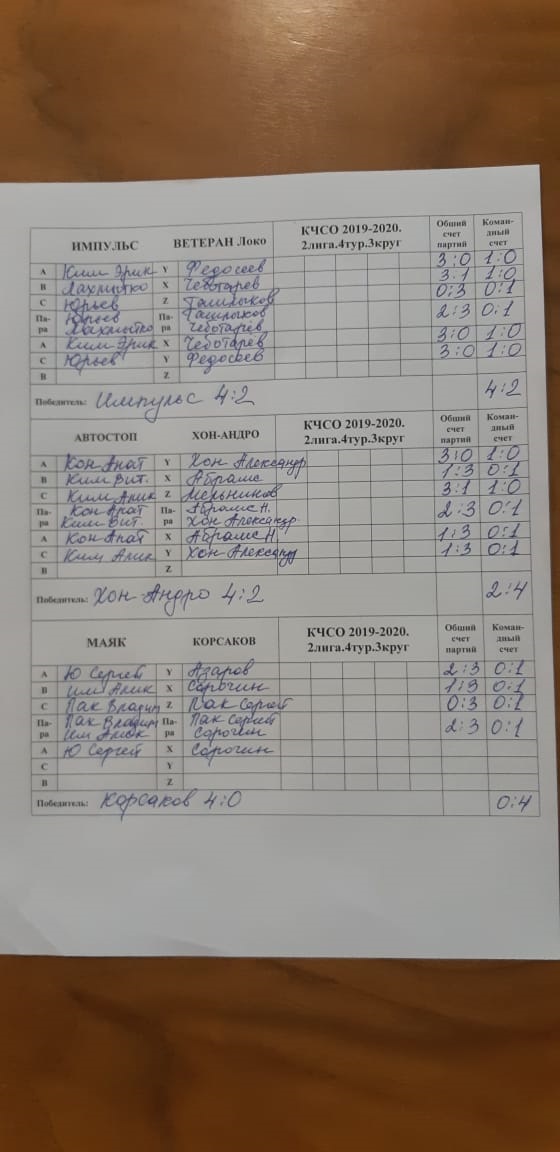 ИМПУЛЬС ВЕТЕРАН Локо КЧСО 2019-2020. 2лига.4тур.3круг Общий счет партий Коман-дный счет
А Ким Эрик Y Федосеев 3:0 1:0
В Лахмытко X Чеботарев 3:1 1:0
С Юрьев Z Ташлыков 0:3 0:1
Па- Юрьев Па- Ташлыков 2:3 0:1
ра Лахмытко ра Чеботарев
А Ким Эрик X Чеботарев 3:0 1:0
С Юрьев Y Федосеев 3:0 1:0
В Z
Победитель: Импульс 4:2 4:2
АВТОСТОП ХОН-АНДРО КЧСО 2019-2020. 2лига.4тур.3круг Общий счет партий Коман-дный счет
А Кон Анат Y Хон Александр 3:0 1:0
В Ким Вит. X Абрамс 1:3 0:1
С Ким Алик Z Мельников 3:1 1:0
Па- Кон Анат Па- Абрамс Н. 2:3 0:1
ра Ким Вит. ра Хон Александр.
А Кон Анат X Абрамс Н. 1:3 0:1
С Ким Алик Y Хон Александр 1:3 0:1
В Z
Победитель: Хон-Андро 4:2 2:4
МАЯК КОРСАКОВ КЧСО 2019-2020. 2лига.4тур.3круг Общий счет партий Коман-дный счет
А Ю Сергей Y Азаров 2:3 0:1
В Им Алик X Сорочин 1:3 0:1
С Пак Владим Z Пак Сергей 0:3 0:1
Па- Пак Владим Па- Пак Сергей 2:3 0:1
ра Им Алик ра Сорочин
А Ю Сергей X Сорочин
С Y
В Z
Победитель: Корсаков 4:0 0:4